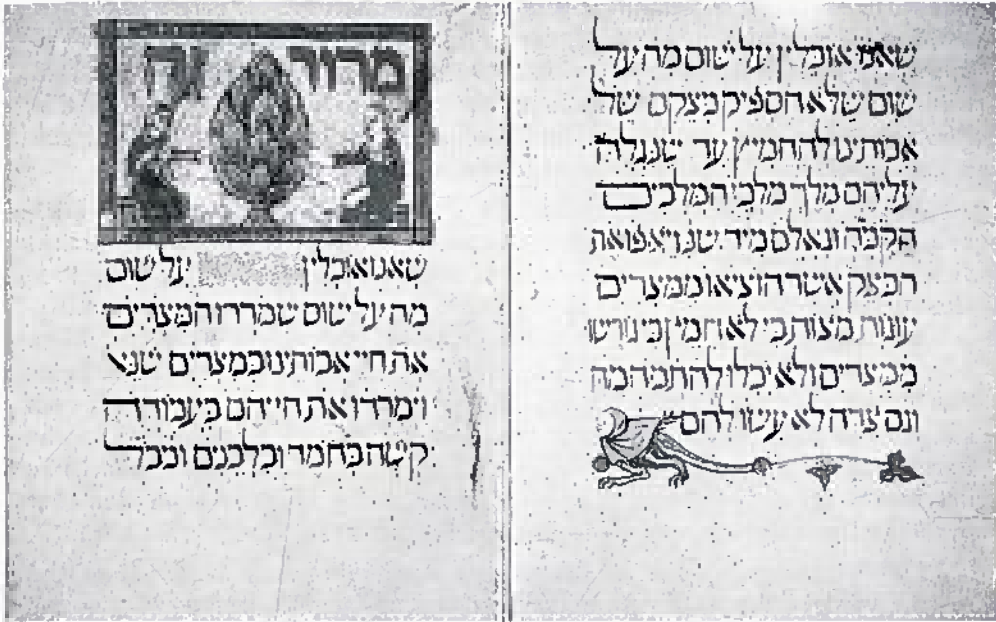 שאנו אוכלין על שום מה על
שום שלא הספיק בצקם של
אבותינו להחמיץ עד שנגלה
עליהם מלך מלכי המלכים
הקב״ה וגאלם מיד שנ׳ ויאפו את
הבצק אשר הוציאו ממצרים
עוגות מצות כי לא חמץ כי גורשו
ממצרים ולא יכלו להתמהמה
וגם צדה לא עשו להם
מרור זה
שאנו אוכלין על שום
מה על שום שמררו המצרים
את חיי אבותינו במצרים שנא׳
וימררו את חייהם בעבודה
קשה בחמר ובלבנים ובכל